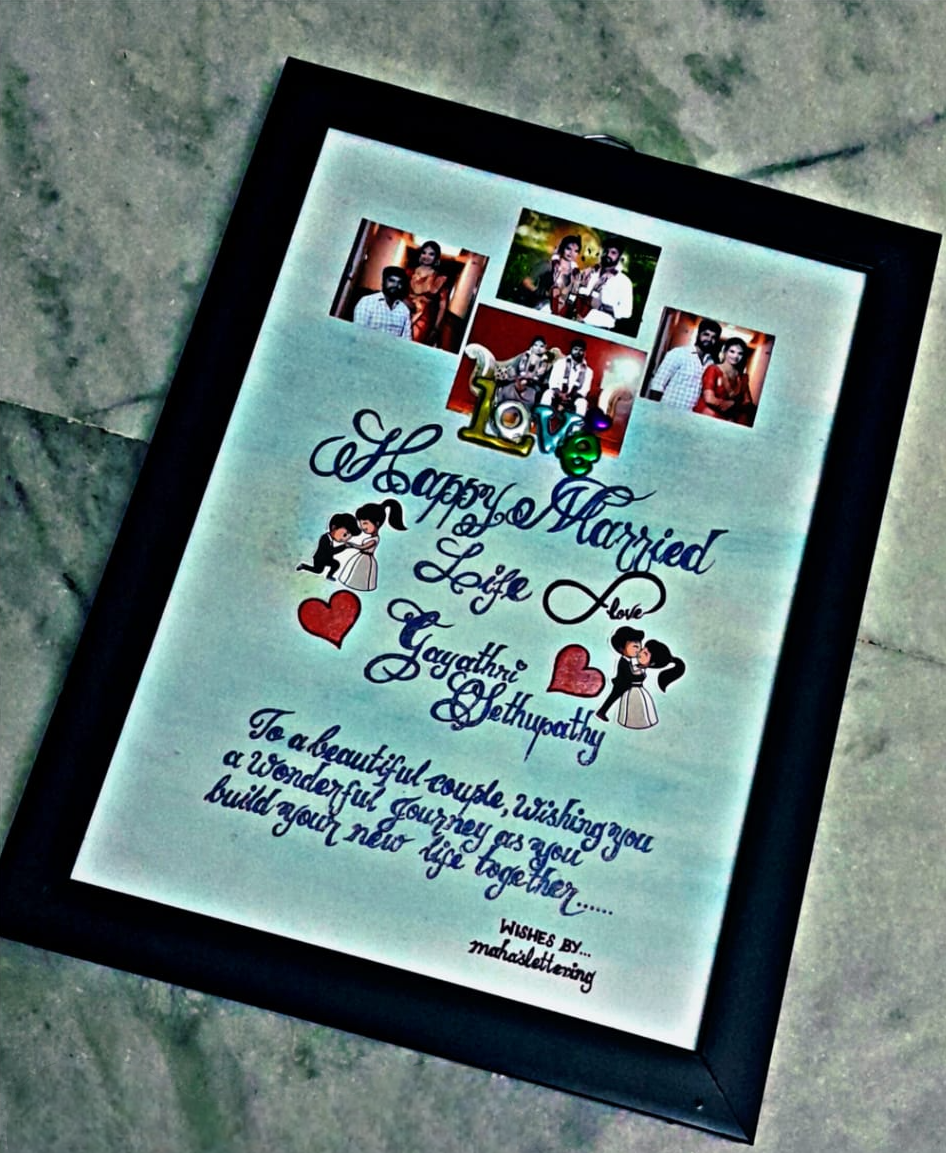 love
Happy Married
Life
love
Gayathri
Sethupathy
To a beautiful couple, Wishing you
a Wonderful Journey as you
build your new life together......
WISHES BY...
maha'slettering